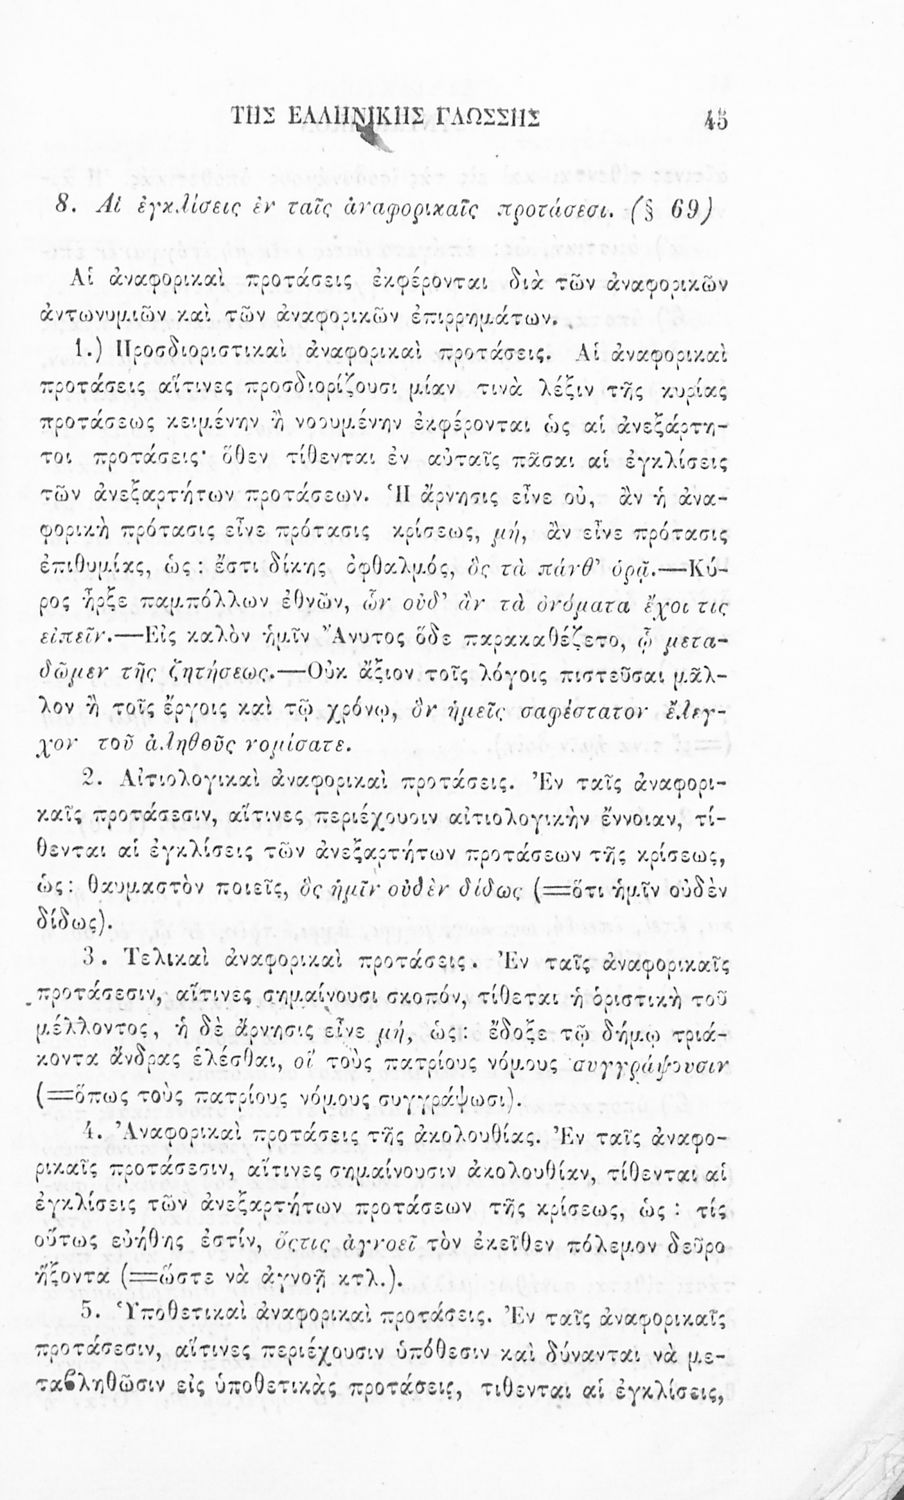 ΤΗΣ ΕΛΛΗΝΙΚΗΣ ΓΛΩΣΣΗΣ 45
8. Αἱ ἐγκλίσεις ἐν ταῖς ἀναφορικαῖς προτάσεσι. (§ 69)
Αἱ ἀναφορικαὶ προτάσεις ἐκφέρονται διὰ τῶν ἀναφορικῶν
ἀντωνυμιῶν καὶ τῶν ἀναφορικῶν ἐπιρρημάτων.
1.) Προσδιοριστικαὶ ἀναφορικαὶ προτάσεις. Αἱ ἀναφορικαὶ
προτάσεις αἵτινες προσδιορίζουσι μίαν τινὰ λέξιν τῆς κυρίας
προτάσεως κειμένην ἢ νοουμένην ἐκφέρονται ὡς αἱ ἀνεξάρτη-
τοι προτάσεις· ὅθεν τίθενται ἐν αὐταῖς πᾶσαι αἱ ἐγκλίσεις
τῶν ἀνεξαρτήτων προτάσεων. Ἡ ἄρνησις εἶνε οὐ, ἂν ἡ ἀνα-
φορικὴ πρότασις εἶνε πρότασις κρίσεως, μή, ἂν εἶνε πρότασις
ἐπιθυμίας, ὡς: ἔστι δίκης ὀφθαλμός, ὃς τὰ πάνθ' ὁρᾷ.—Κῦ-
ρος ἦρξε παμπόλλων ἐθνῶν, ὧν οὐδ' ἂν τὰ ὀνόματα ἔχοι τις
εἰπεῖν.—Εἰς καλὸν ἡμῖν Ἄνυτος ὅδε παρακαθέζετο, ᾧ μετα-
δῶμεν τῆς ζητήσεως.—Οὐκ ἄξιον τοῖς λόγοις πιστεῦσαι μᾶλ-
λον ἢ τοῖς ἔργοις καὶ τῷ χρόνῳ, ὃν ἡμεῖς σαφέστατον ἔλεγ-
χον τοῦ ἀληθοῦς νομίσατε.
2. Αἰτιολογικαὶ ἀναφορικαὶ προτάσεις. Ἐν ταῖς ἀναφορι-
καῖς προτάσεσιν, αἵτινες περιέχουοιν αἰτιολογικὴν ἔννοιαν, τί-
θενται αἱ ἐγκλίσεις τῶν ἀνεξαρτήτων προτάσεων τῆς κρίσεως,
ὡς: θαυμαστὸν ποιεῖς, ὃς ἡμῖν οὐδὲν δίδως (=ὅτι ἡμῖν οὐδὲν
δίδως).
3. Τελικαὶ ἀναφορικαὶ προτάσεις. Ἐν ταῖς ἀναφορικαῖς
προτάσεσιν, αἵτινες σημαίνουσι σκοπόν, τίθεται ἡ ὁριστικὴ τοῦ
μέλλοντος, ἡ δὲ ἄρνησις εἶνε μή, ὡς: ἔδοξε τῷ δήμῳ τριά-
κοντα ἄνδρας ἑλέσθαι, οἳ τοὺς πατρίους νόμους συγγράψουσιν
(=ὅπως τοὺς πατρίους νόμους συγγράψωσι).
4. Ἀναφορικαὶ προτάσεις τῆς ἀκολουθίας. Ἐν ταῖς ἀναφο-
ρικαῖς προτάσεσιν, αἵτινες σημαίνουσιν ἀκολουθίαν, τίθενται αἱ
ἐγκλίσεις τῶν ἀνεξαρτήτων προτάσεων τῆς κρίσεως, ὡς: τίς
οὕτως εὐήθης ἐστίν, ὅςτις ἀγνοεῖ τὸν ἐκεῖθεν πόλεμον δεῦρο
ἥξοντα (=ὥστε νὰ ἀγνοῇ κτλ.).
5. Ὑποθετικαὶ ἀναφορικαὶ προτάσεις. Ἐν ταῖς ἀναφορικαῖς
προτάσεσιν, αἵτινες περιέχουσιν ὑπόθεσιν καὶ δύνανται νὰ με-
ταβληθῶσιν εἰς ὑποθετικὰς προτάσεις, τιθενται αἱ ἐγκλίσεις,